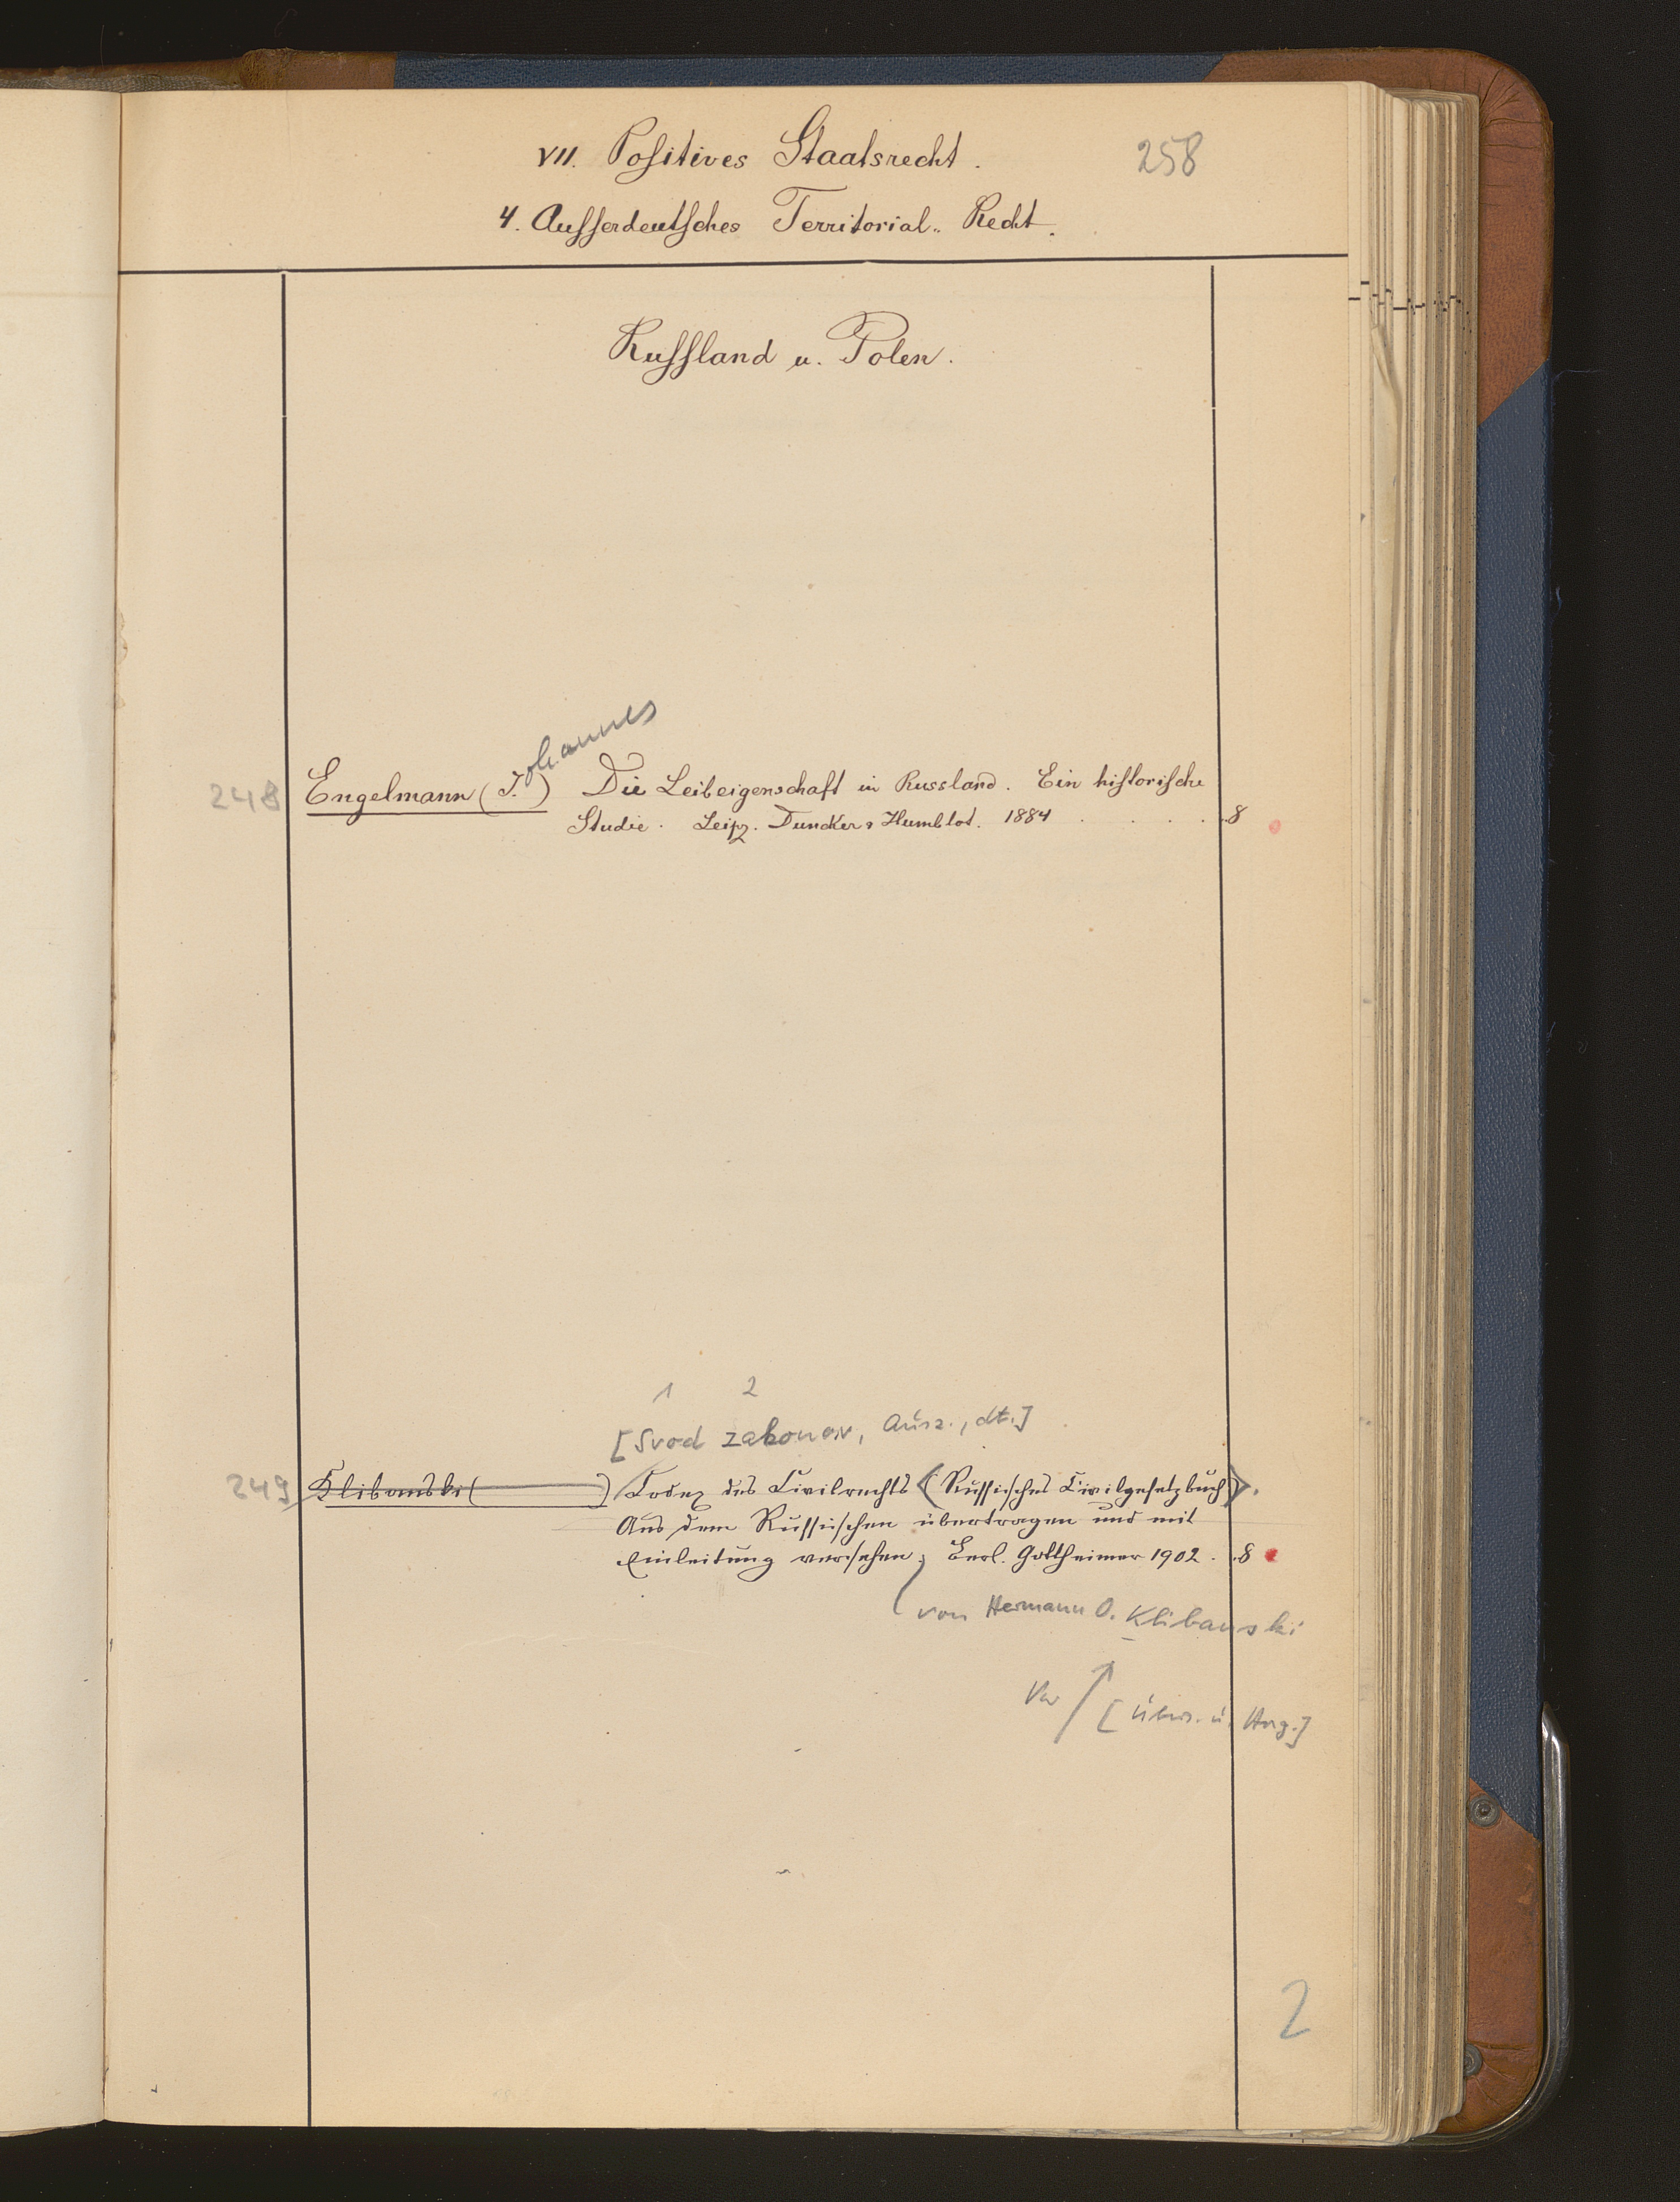 VII. Positives Staatsrecht. 258
4. Ausserdeutsches Territorial-Recht.
Russland u. Polen.
248 Engelmann (J.ohannes) Die Leibeigenschaft in Russland. Ein historische
Studie. Leipz. Duncker & Humblot. 1884 . . . . . 8
1 2
[Svod zakonov, Ausz., dt.]
249 Klibanski ( ) Codex des Civilrechts <(Russisches Civilgesetzbuch)>.
Aus dem Russischen übertragen und mit
Einleitung versehen; Berl. Guttheimer 1902 . . 8
von Hermann O. Klibanski
Vw [Übers. u. Hrsg.]
2